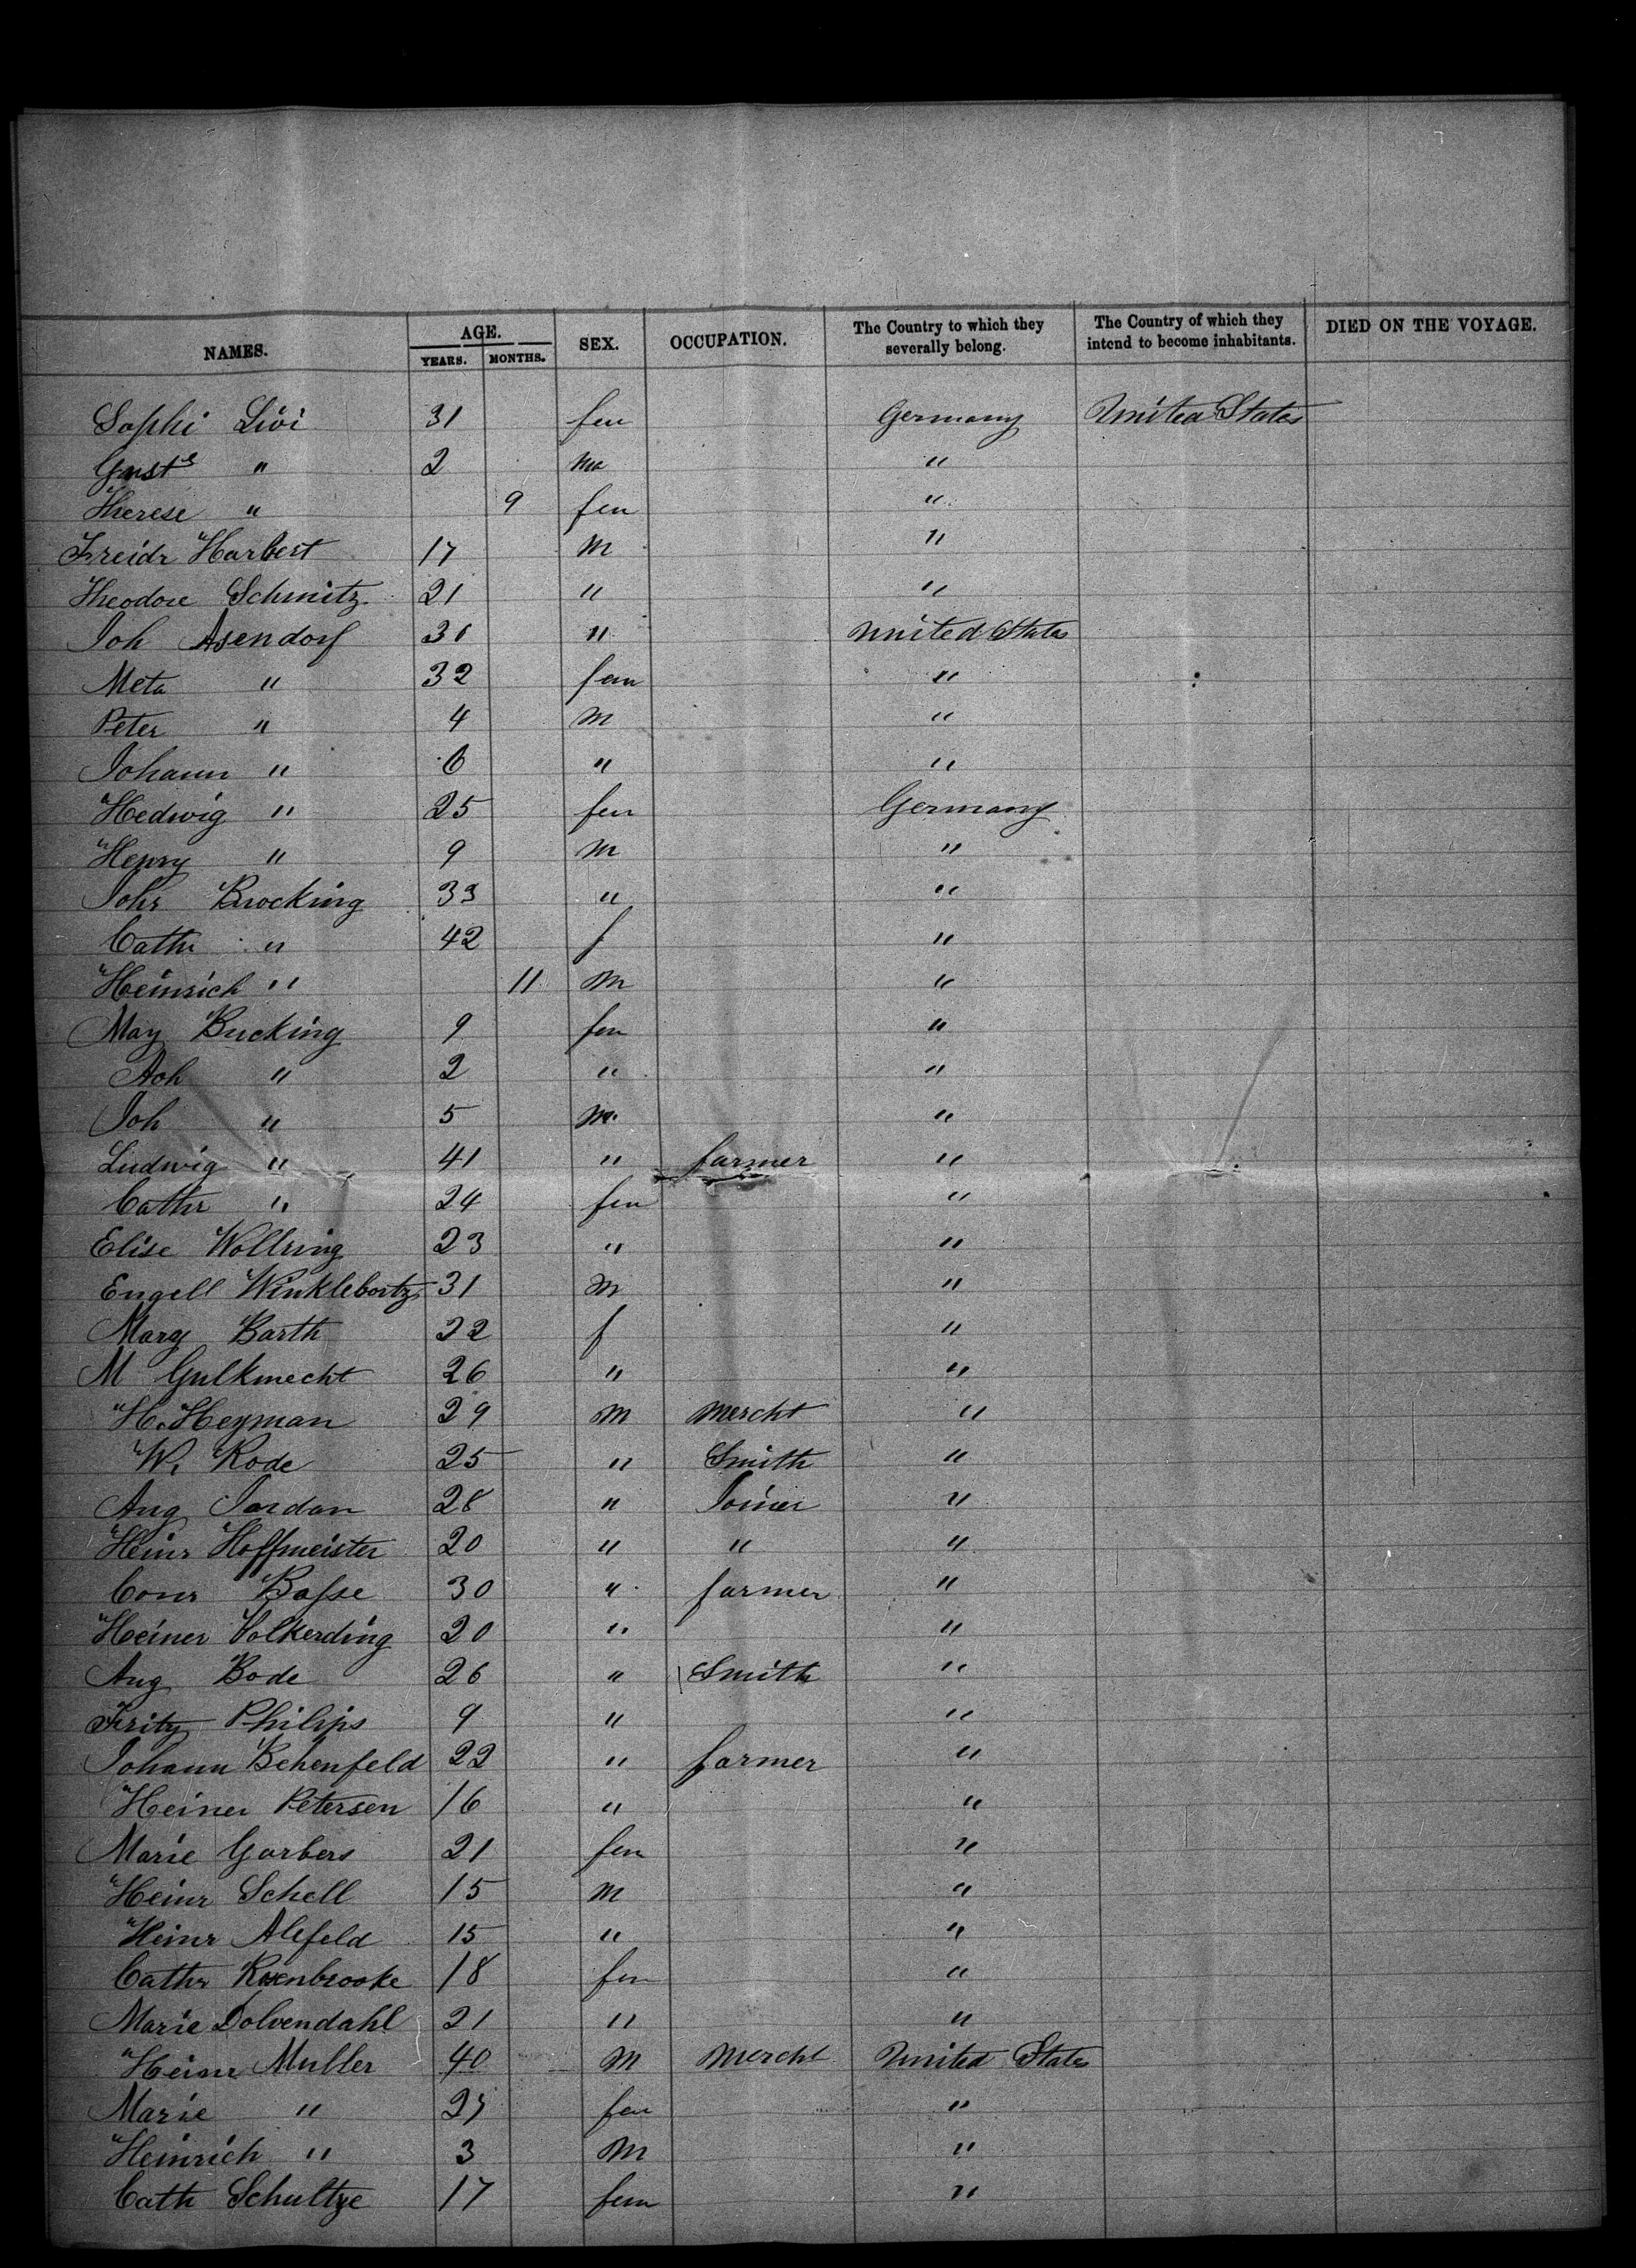 NAMES. AGE. YEARS. MONTHS. SEX. OCCUPATION. The Country to which they severally belong. The Country of which they intend to become inhabitants. DIED ON THE VOYAGE.
Sophi Livi 31 fem Germany United States
Gust " 2 m "
Therese " 9 fem "
Freidr Harbert 17 m "
Theodore Schmitz 21 " "
Joh Asendorf 31 " United States
Meta " 32 fem "
Peter " 4 m "
Johann " 6 " "
Hedwig " 25 fem Germany
Henry " 9 m "
Johs Brocking 33 " "
Cathr " 42 f "
Heinrich " 11 m "
May Bucking 9 fem "
Ach " 2 " "
Joh " 5 m "
Ludwig " 41 " farmer "
Cathr " 24 fem "
Elise Wollring 23 " "
Engell Winklebortz 31 m "
Mary Barth 22 f "
M Gulknecht 26 " "
H. Heyman 29 m mercht "
W. Rode 25 " Smith "
Aug Jordan 28 " Joiner "
Heinr Hoffmeister 20 " " "
Conr Basse 30 " farmer "
Heiner Volkerding 20 " "
Aug Bode 26 " Smith "
Fritz Philips 9 " "
Johann Behenfeld 22 " farmer "
Heiner Petersen 16 " "
Marie Garbers 21 fem "
Heinr Schell 15 m "
Heinr Alefeld 15 " "
Cathr 18 fem "
Marie Dolvendahl 21 " "
Heinr Muller 40 m mercht United States
Marie " 27 fem "
Heinrich " 3 m "
Cath Schultze 17 fem "